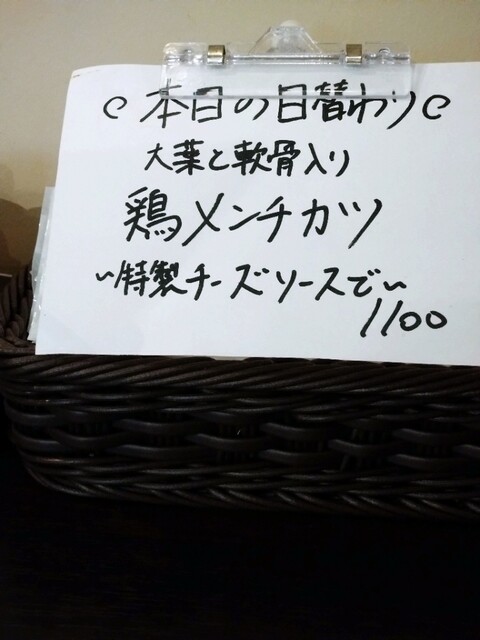 本日の日替わり
大葉と軟骨入り
鶏メンチカツ
~特製チーズソースで~
1100